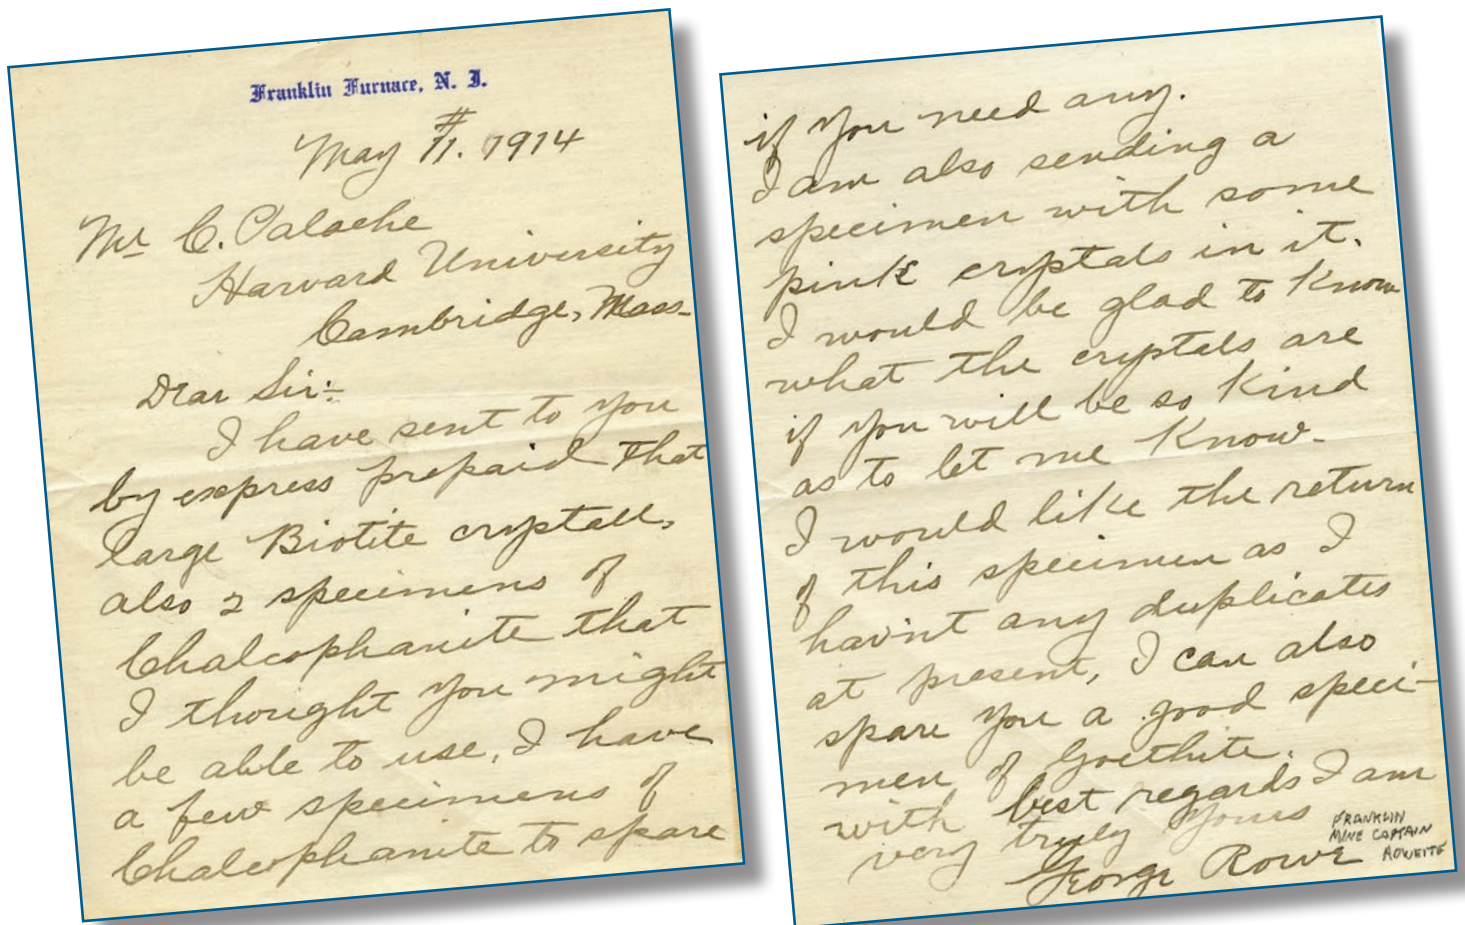 Franklin Furnace, N. J.
May 11. 1914
Mr C. Palache
Harvard University
Cambridge, Mass-
Dear Sir:-
I have sent to you
by express prepaid that
large Biotite crystall,
also 2 specimens of
Chalcophanite that
I thought you might
be able to use, I have
a few specimens of
Chalcophanite to spare
if you need any.
I am also sending a
specimen with some
pink crystals in it.
I would be glad to know
what the crystals are
if you will be so kind
as to let me know-
I would like the return
of this specimen as I
hav'nt any duplicates
at present, I can also
spare you a good speci-
men of Goethite.
with best regards I am
very truly yours
George Rowe
FRANKLIN
MINE CAPTAIN
ROWEITE